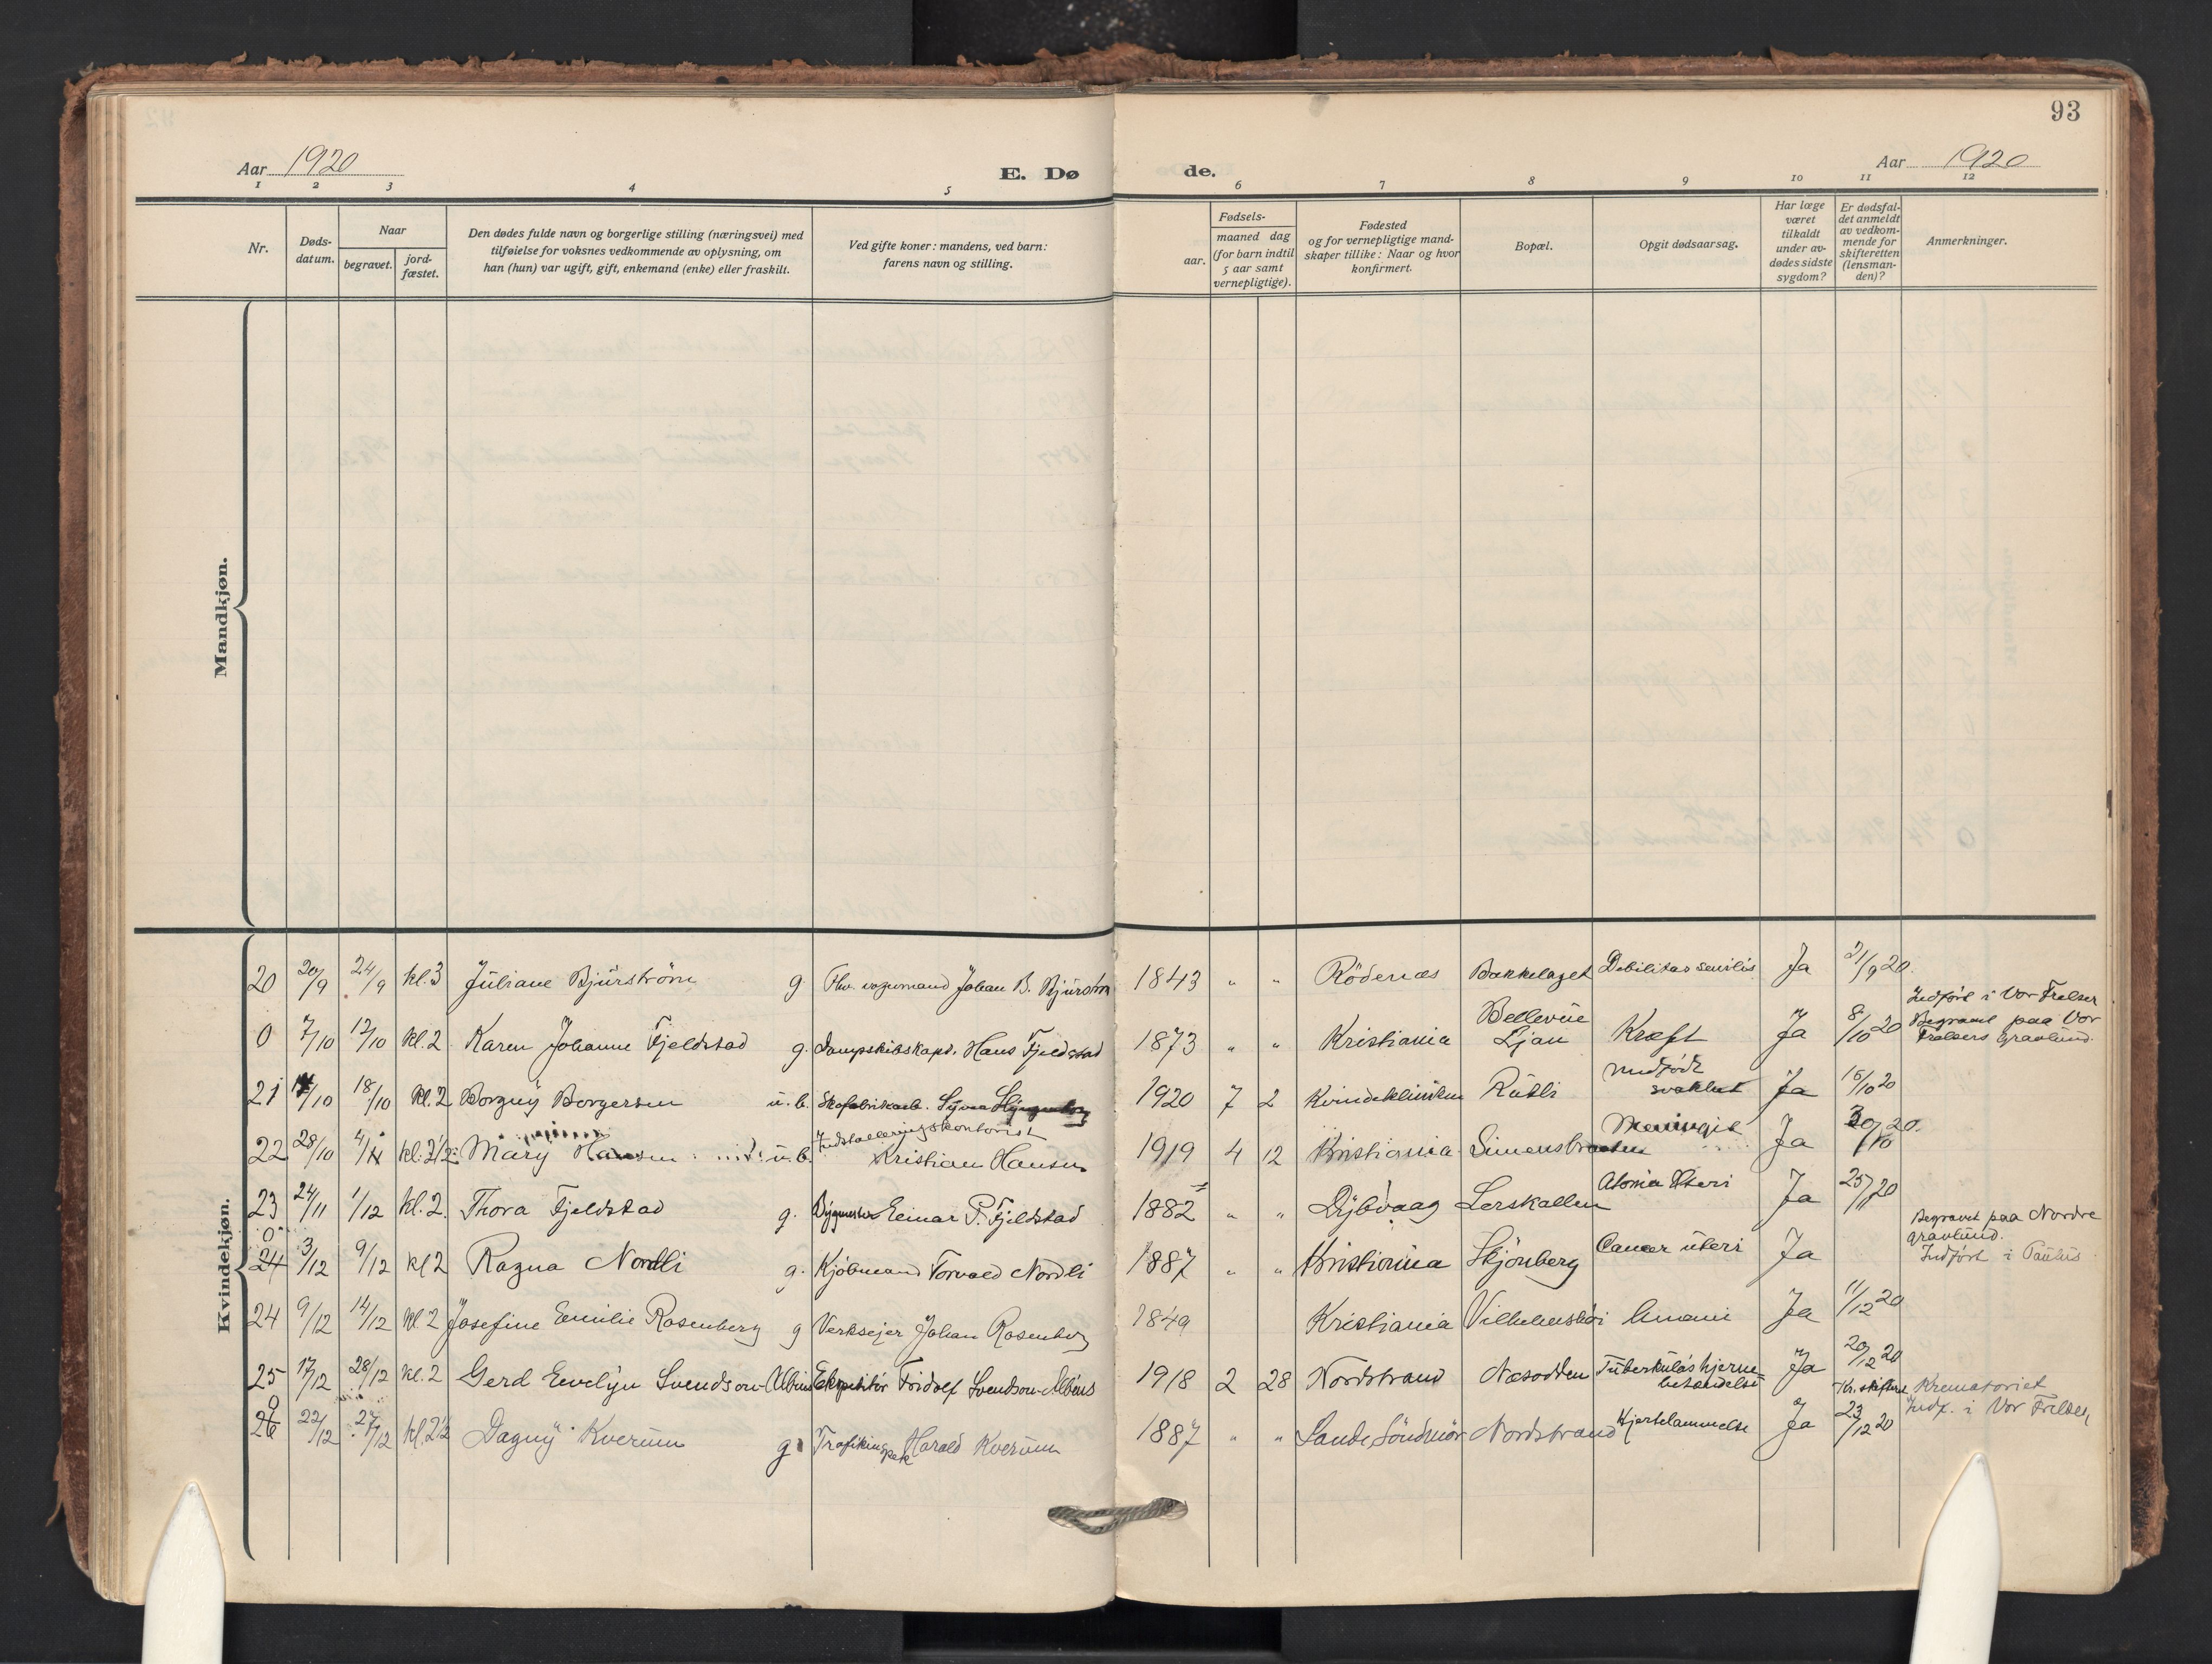 93
Aar 1920
E. Dø de.
Aar 1920
1 2 3 4 5 6 7 8 9 10 11 12
Nr.
Døds-
datum.
Naar
begravet.
jord-
fæstet.
Den dødes fulde navn og borgerlige stilling (næringsvei) med
tilføielse for voksnes vedkommende av oplysning, om
han (hun) var ugift, gift, enkemand (enke) eller fraskilt.
Ved gifte koner: mandens, ved barn:
farens navn og stilling.
Fødsels-
aar.
maaned dag
(for barn indtil
5 aar samt
vernepligtige).
Fødested
og for vernepligtige mand-
skaper tillike: Naar og hvor
konfirmert.
Bopæl.
Opgit dødsaarsag.
Har læge
været
tilkaldt
under av-
dødes sidste
sygdom?
Er dødsfal-
det anmeldt
av vedkom-
mende for
skifteretten
(lensman-
den)?
Anmerkninger.
Mandkjøn.
Kvindekjøn.
20 20/9 24/9 kl. 3 Juliane Bjürström g. Fhv. vognmand Johan B. Bjürström 1843 " " Rödenæs Bækkelaget Debilitas senilis Ja 21/9 20.
0 7/10 12/10 kl. 2 Karen Johanne Fjeldstad g. Dampskibskapt. Hans Fjeldstad 1873 " " Kristiania Bellevüe
Ljan Kræft Ja 8/10 20 Indført i Vor Frelser
Begravet paa Vor
Frelsers Gravlund.
21 14/10 18/10 kl. 2 Borgny Borgersen u. b. Skofabrikarb. 1920 7 2 Kvindeklinikken Rütli Medfödt
svakhet Ja 15/10 20
22 28/10 4/11 kl. 2 1/2 Mary Hansen u. b. Installeringskontorist
Kristian Hansen 1919 4 12 Kristiania Simensbraaten Meningit Ja 30/10 20.
23 24/11 1/12 kl. 2. Thora Fjeldstad g. Bygmester Einar P. Fjeldstad 1882 " " Dybvaag Lerskallen Atonia Uteri Ja 25/11 20
0
24 3/12 9/12 kl 2 Ragna Nordli g. Kjöbmand Torvald Nordli 1887 " " Kristiania Skjönberg Cancer üteri Ja Begravet paa Nordre
gravlünd.
Indfört i Paülüs
24 9/12 14/12 kl. 2 Josefine Emilie Rosenberg g Verkseier Johan Rosenberg 1849 Kristiania Vilhelmshöi Ja 11/12 20
25 17/12 28/12 kl. 2 Gerd Evelyn Svendson-Albins Ekspeditör Fridolf Svendson-Albins 1918 2 28 Nordstrand Næsodden Tüberkülös hjerne
betændelse Ja 20/12 20
Kr. skifteret Krematoriet
Indf. i Vor Frelser
0
26 22/12 27/12 kl. 2 1/2 Dagny Kverüm g. Trafikinspek Harald Kverüm 1887 " " Sande, Söndmör Nordstrand Hjertelammelse Ja 23/12 20